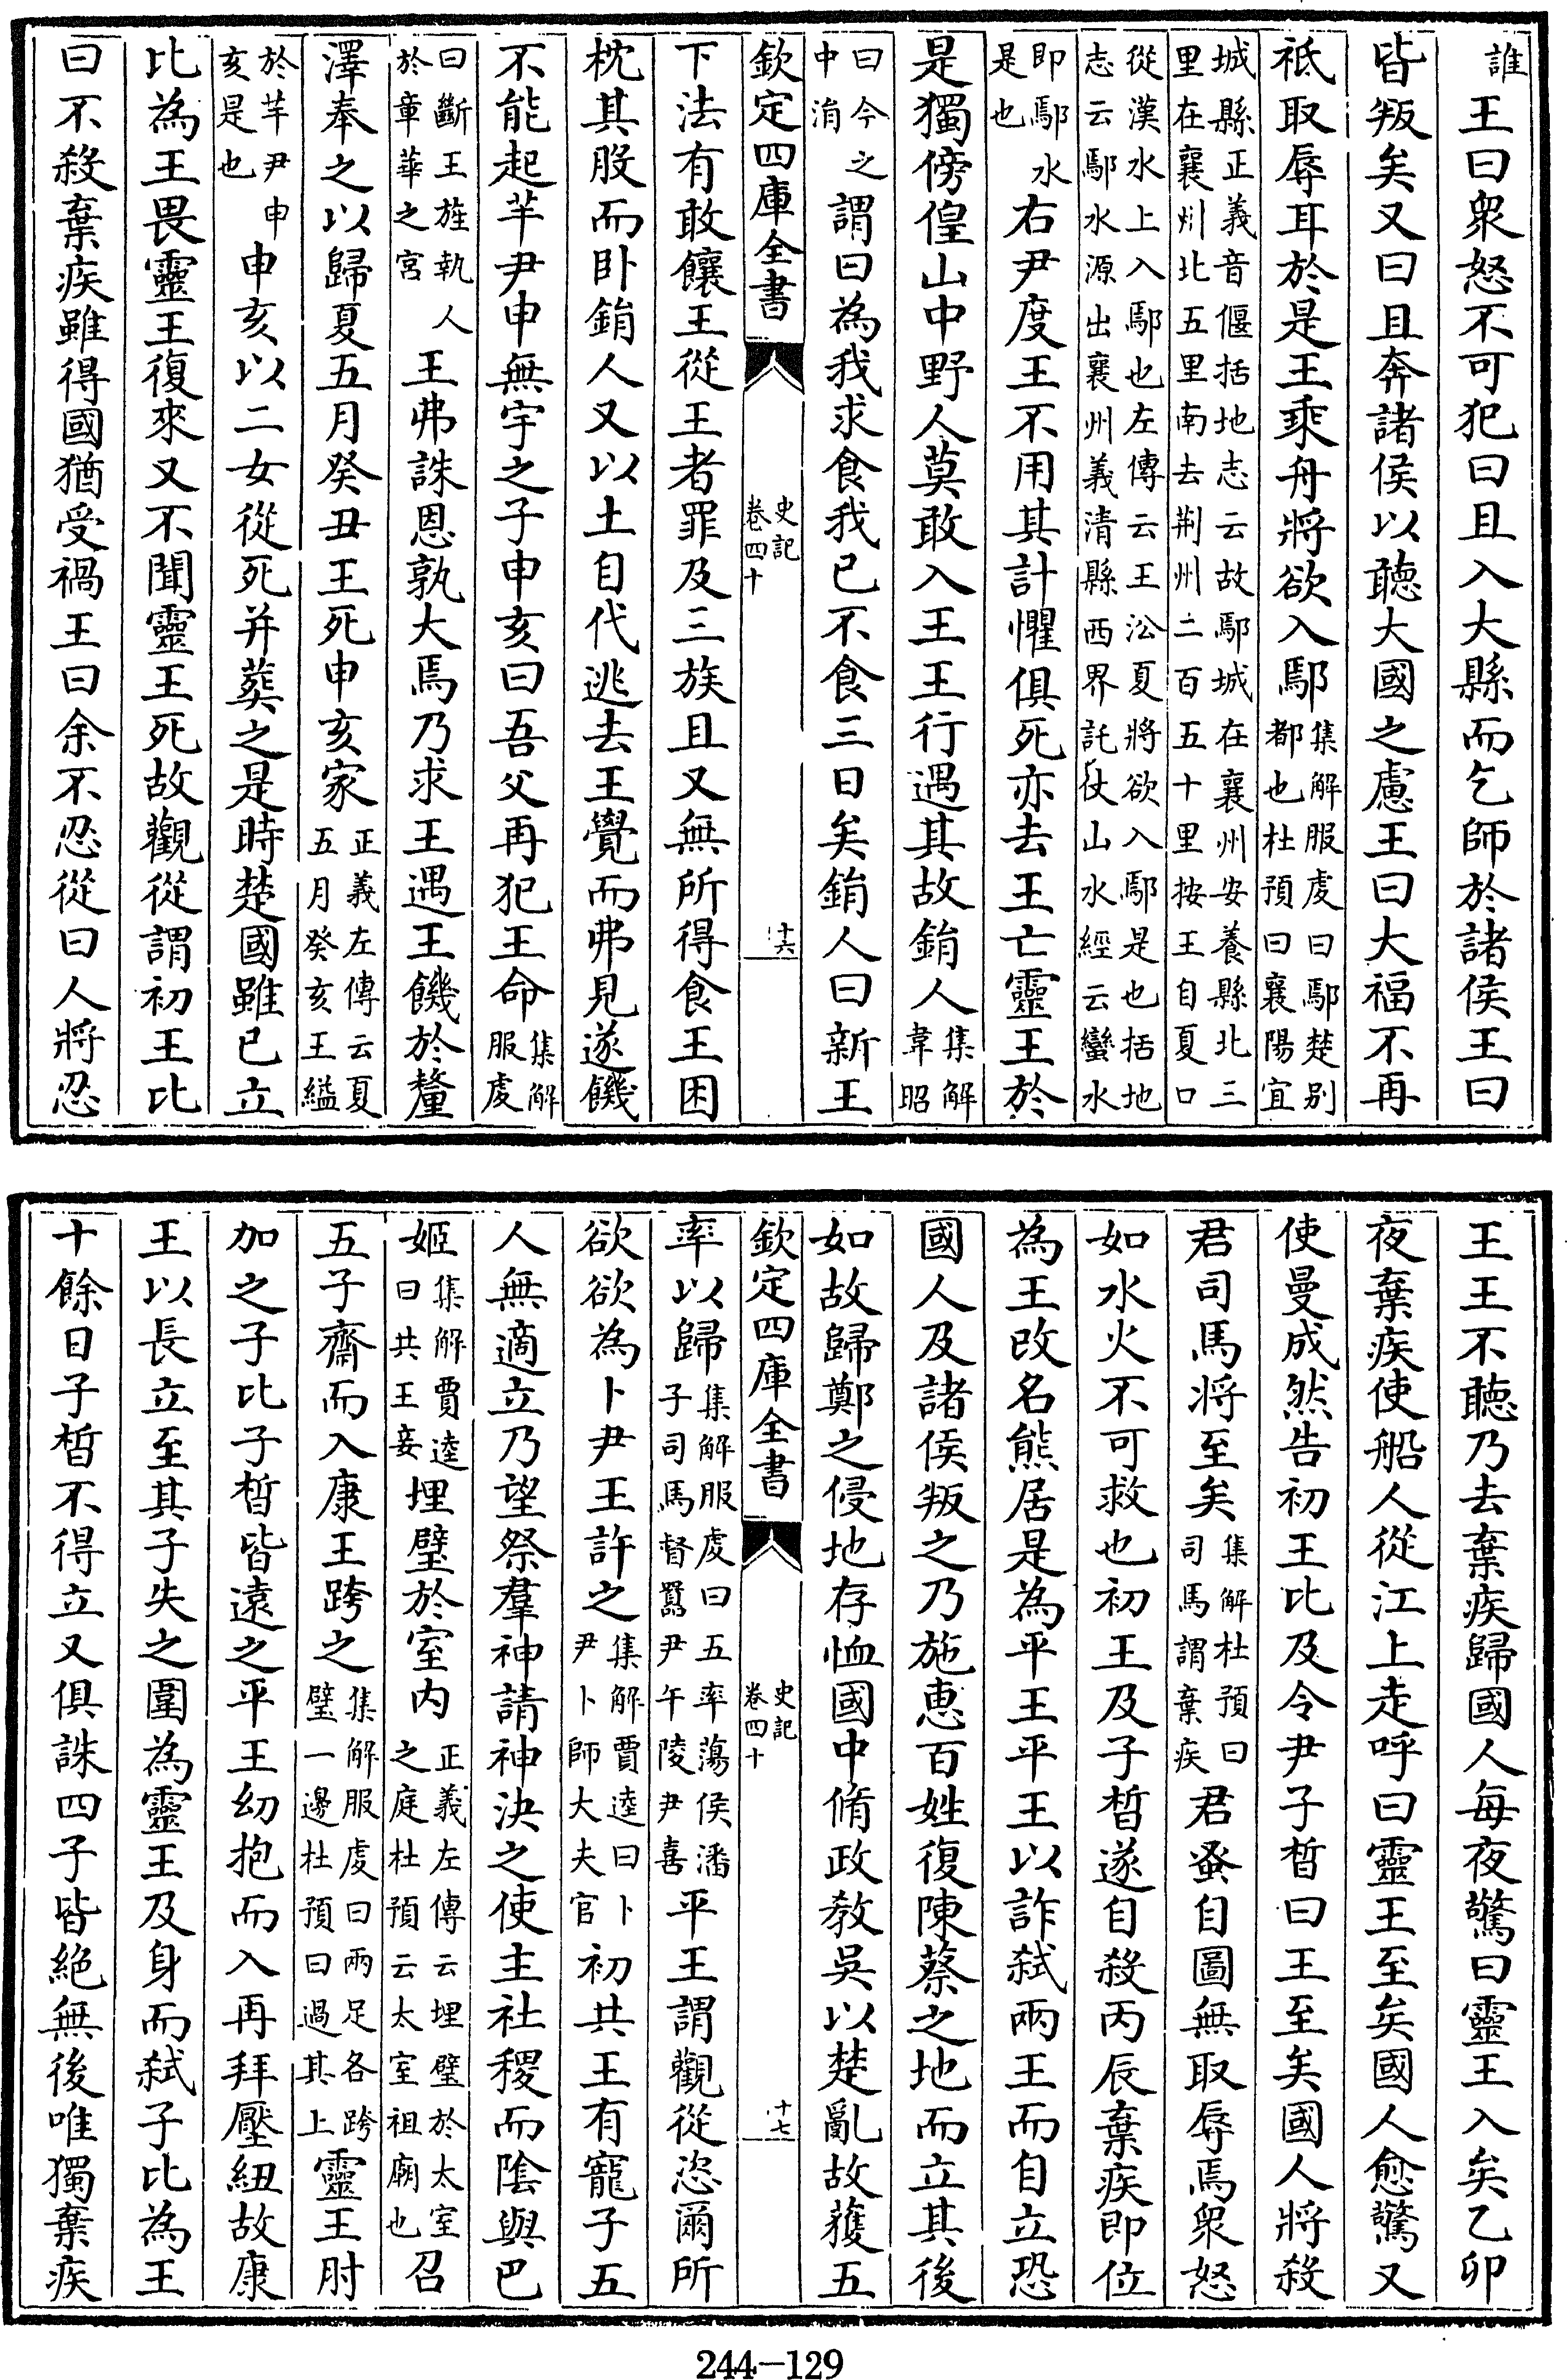 誰王曰衆怒不可犯曰且入大縣而乞師於諸侯王曰
皆叛矣又曰且奔諸侯以聽大國之慮王曰大福不再
祗取辱耳於是王乘舟將欲入鄢集解服虔曰鄢楚别都也杜預曰襄陽宜
城縣正義音偃括地志云故鄢城在襄州安養縣北三里在襄州北五里南去荆州二百五十里按王自夏口
從漢水上入鄢也左傳云王沿夏將欲入鄢是也括地志云鄢水源出襄州義清縣西界託仗山水經云蠻水
即鄢水是也右尹度王不用其計懼俱死亦去王亡靈王於
是獨傍偟山中野人莫敢入王王行遇其故鋗人集解韋昭
曰今之中涓謂曰為我求食我已不食三日矣鋗人曰新王
欽定四庫全書
史記卷四十
十六
下法有敢饟王從王者罪及三族且又無所得食王困
枕其股而卧鋗人又以土自代逃去王覺而弗見遂饑
不能起芊尹申無宇之子申亥曰吾父再犯王命集解服虔
曰斷王旌執人於章華之宮王弗誅恩孰大焉乃求王遇王饑於釐
澤奉之以歸夏五月癸丑王死申亥家正義左傳云夏五月癸亥王縊
於芊尹申亥是也申亥以二女從死并葬之是時楚國雖已立
比為王畏靈王復來又不聞靈王死故觀從謂初王比
曰不殺棄疾雖得國猶受禍王曰余不忍從曰人將忍
王王不聽乃去棄疾歸國人每夜驚曰靈王入矣乙卯
夜棄疾使船人從江上走呼曰靈王至矣國人愈驚又
使曼成然告初王比及令尹子晳曰王至矣國人將殺
君司馬將至矣集解杜預曰司馬謂棄疾君蚤自圖無取辱焉衆怒
如水火不可救也初王及子晳遂自殺丙辰棄疾即位
為王改名熊居是為平王平王以詐弑兩王而自立恐
國人及諸侯叛之乃施惠百姓復陳蔡之地而立其後
如故歸鄭之侵地存恤國中脩政教吳以楚亂故獲五
欽定四庫全書
史記卷四十
十七
率以歸集解服虔曰五率蕩侯潘子司馬督囂尹午陵尹喜平王謂觀從恣爾所
欲欲為卜尹王許之集解賈逵曰卜尹卜師大夫官初共王有寵子五
人無適立乃望祭羣神請神決之使主社稷而陰與巴
姬集解賈逵曰共王妾埋璧於室内正義左傳云埋璧於太室之庭杜預云太室祖廟也召
五子齋而入康王跨之集解服虔曰兩足各跨璧一邊杜預曰過其上靈王肘
加之子比子晳皆遠之平王幼抱而入再拜壓紐故康
王以長立至其子失之圍為靈王及身而弑子比為王
十餘日子晳不得立又俱誅四子皆絶無後唯獨棄疾
244-129